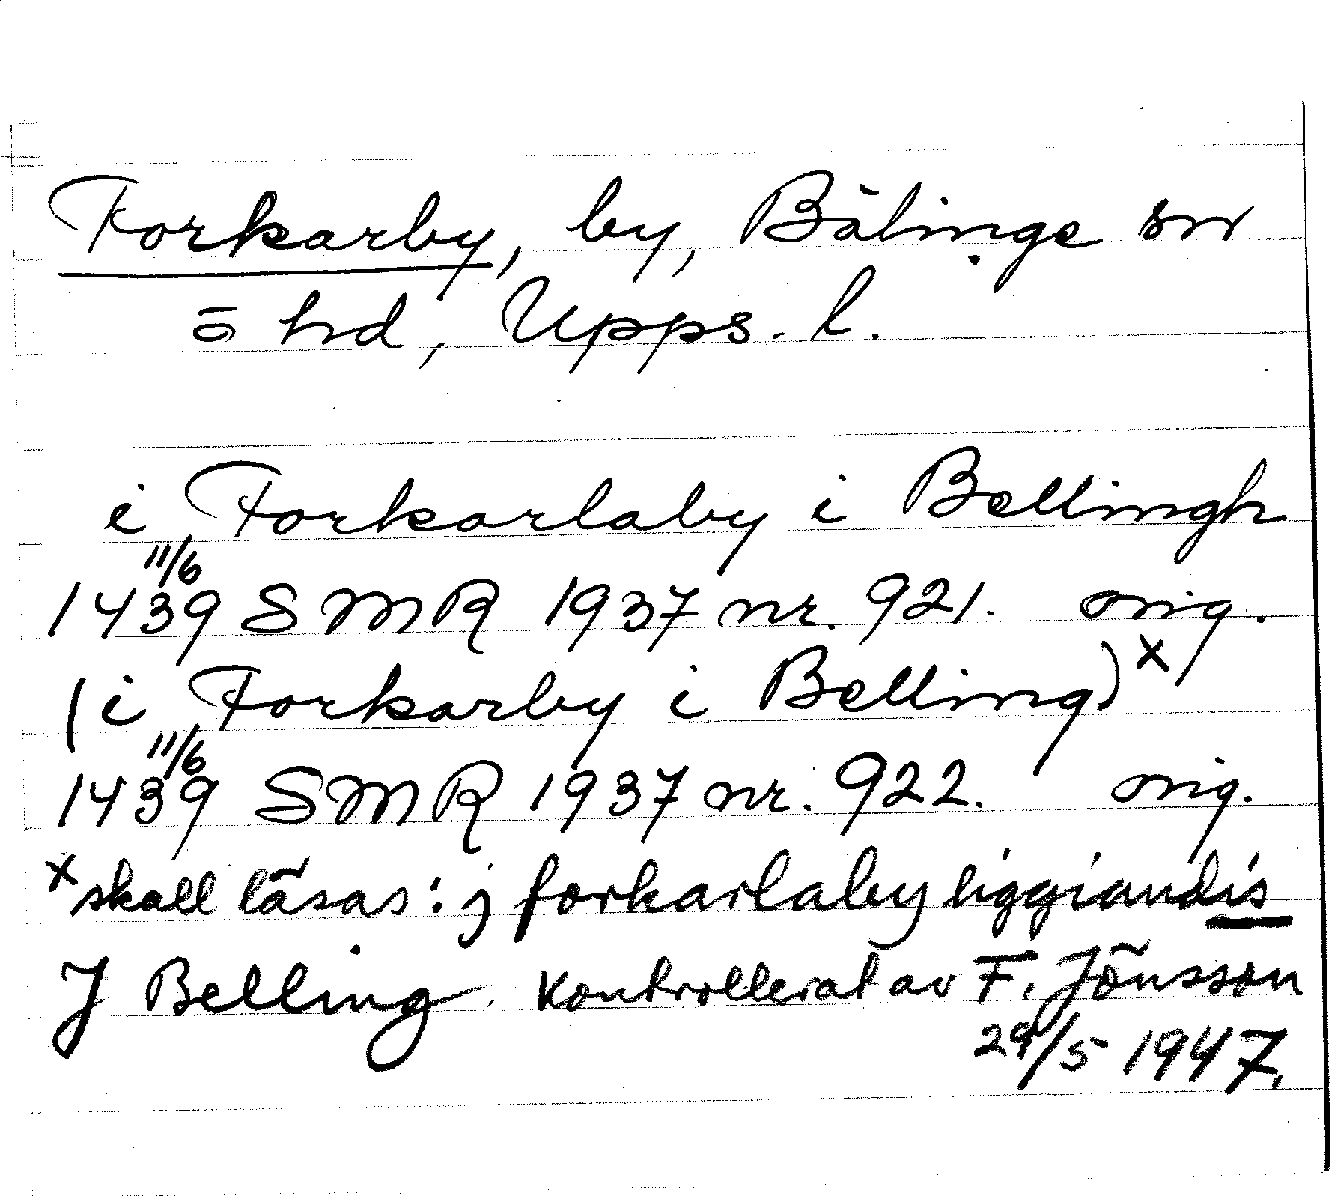 Forkarby, by, Bälinge sn
o hd, Upps. l.
i Forkarlaby i Bellingh
11/6
1439 SMR 1937 nr. 921. orig.
(i Forkarby i Belling) x
11/6
1439 SMR 1937 nr. 922. orig.
x skall läsas: j forkarlaby liggiandis
J Belling. Kontrollerat av F. Jönsson
29/5 1947.